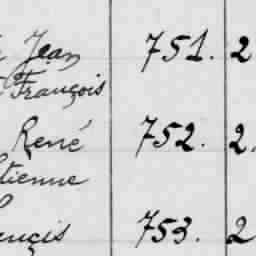 Jean 751. 2
François
René 752. 2.
tienne
ençis 753. 2